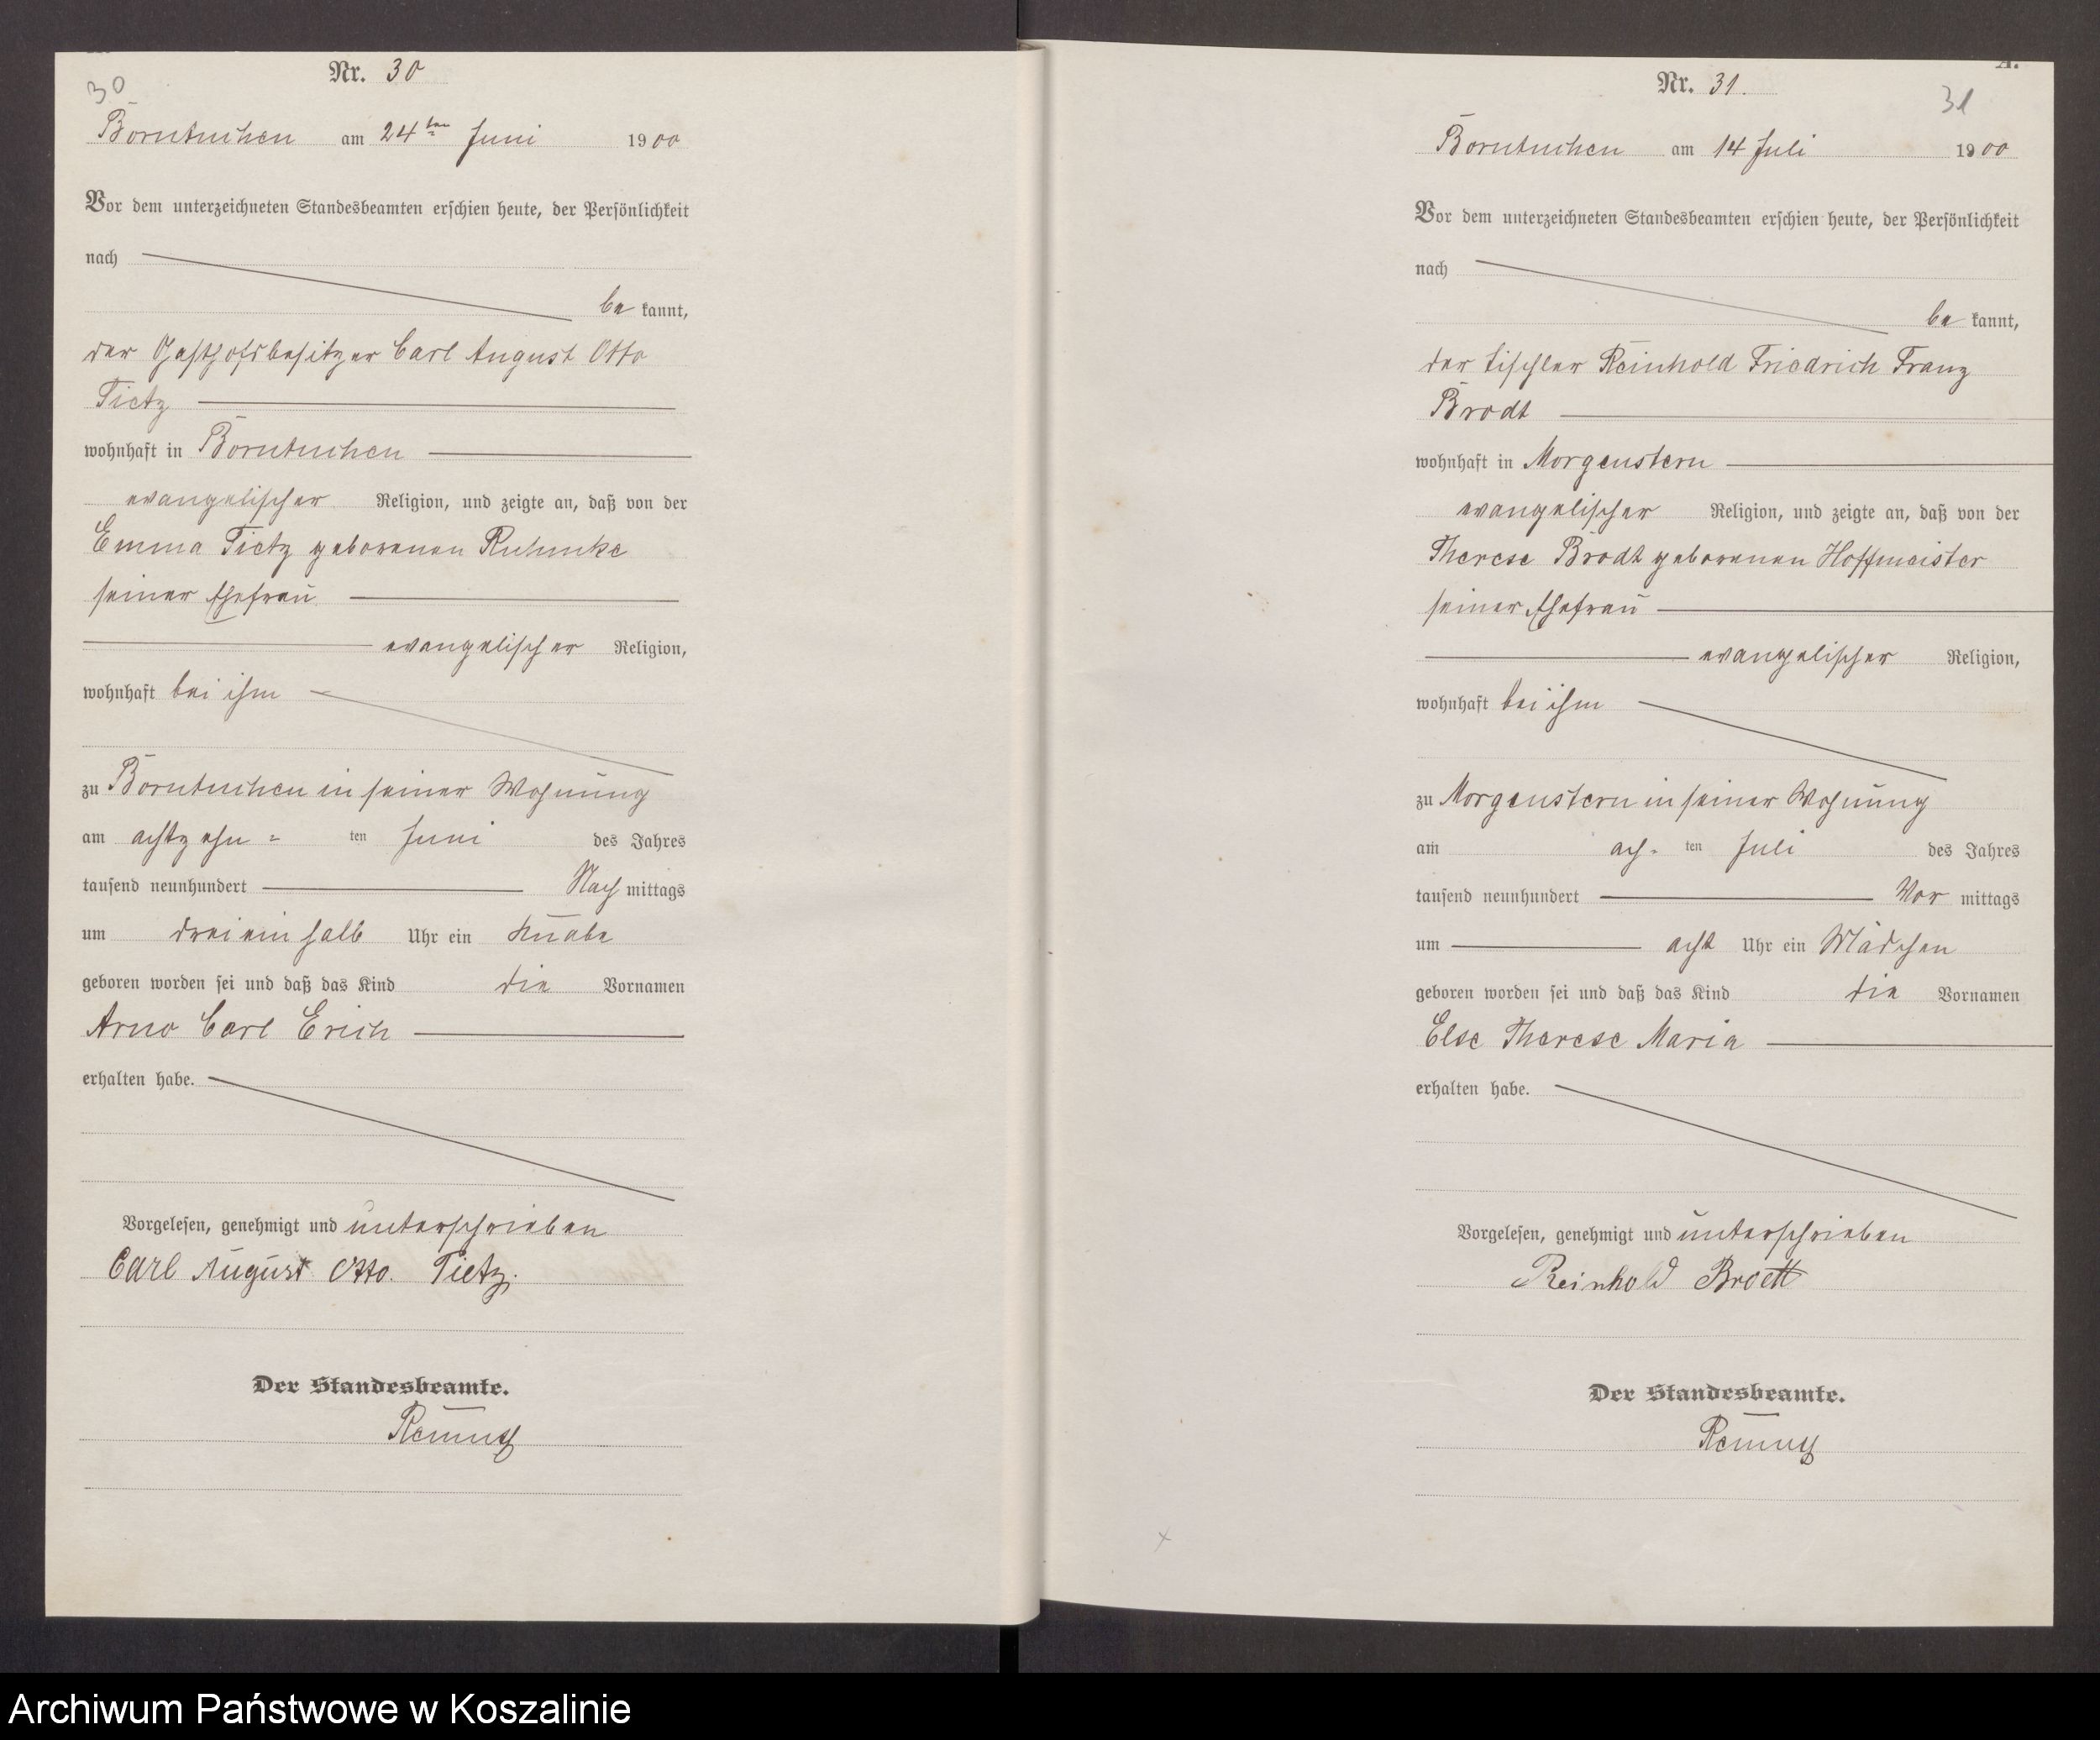 Nr. 30
30
Borntuchen am 24ten Juni 1900
Vor dem unterzeichneten Standesbeamten erschien heute, der Persönlichkeit
nach
be kannt,
der Gasthofsbesitzer Carl August Otto
Tietz
wohnhaft in Borntuchen
evangelischer Religion, und zeigte an, daß von der
Emma Tietz geborenen Ruhnke
seiner Ehefrau
evangelischer Religion,
wohnhaft bei ihm
zu Borntuchen in seiner Wohnung
am achtzehn = ten Juni des Jahres
tausend neunhundert Nach mittags
um dreieinhalb Uhr ein Knabe
geboren worden sei und daß das Kind die Vornamen
Arno Carl Erich
erhalten habe.
Vorgelesen, genehmigt und unterschrieben
Carl August Otto Tietz.
Der Standesbeamte.
A.
Nr. 31.
31
Borntuchen am 14 Juli 1900
Vor dem unterzeichneten Standesbeamten erschien heute, der Persönlichkeit
nach
be kannt,
der Tischler Reinhold Friedrich Franz
Brodt
wohnhaft in Morgenstern
evangelischer Religion, und zeigte an, daß von der
Therese Brodt geborenen Hoffmeister
seiner Ehefrau
evangelischer Religion,
wohnhaft bei ihm
zu Morgenstern in seiner Wohnung
am ach- ten Juli des Jahres
tausend neunhundert Vor mittags
um acht Uhr ein Mädchen
geboren worden sei und daß das Kind die Vornamen
Else Therese Maria
erhalten habe.
Vorgelesen, genehmigt und unterschrieben
Reinhold Brodt
Der Standesbeamte.
Archiwum Państwowe w Koszalinie